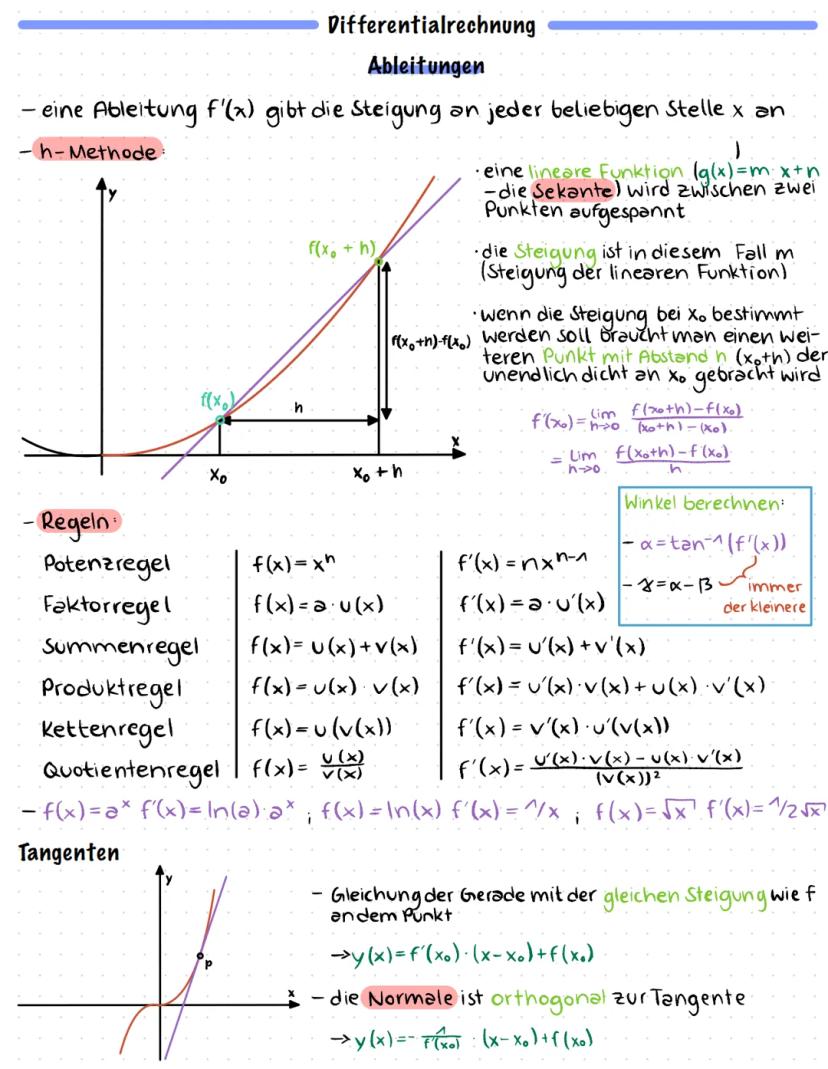 Differentialrechnung
Ableitungen
– eine Ableitung f'(x) gibt die Steigung an jeder beliebigen Stelle x an
– h-Methode:
y
f(x₀ + h)
f(x₀+h)-f(x₀)
f(x₀)
h
x
x₀
x₀ + h
· eine lineare Funktion (g(x)=m·x+n)
– die Sekante) wird zwischen zwei
Punkten aufgespannt
· die Steigung ist in diesem Fall m
(Steigung der linearen Funktion)
· wenn die Steigung bei x₀ bestimmt
werden soll braucht man einen wei-
teren Punkt mit Abstand h (x₀+h) der
unendlich dicht an x₀ gebracht wird
f'(x₀) = lim h→0 (f(x₀+h)-f(x₀))/((x₀+h)-(x₀))
= lim h→0 (f(x₀+h)-f(x₀))/h
Winkel berechnen:
– α=tan⁻¹(f'(x))
– γ=α-β
immer
der kleinere
– Regeln:
Potenzregel f(x)=xⁿ f'(x)=nxⁿ⁻¹
Faktorregel f(x)=a·u(x) f'(x)=a·u'(x)
Summenregel f(x)=u(x)+v(x) f'(x)=u'(x)+v'(x)
Produktregel f(x)=u(x)·v(x) f'(x)=u'(x)·v(x)+u(x)·v'(x)
Kettenregel f(x)=u(v(x)) f'(x)=v'(x)·u'(v(x))
Quotientenregel f(x)=u(x)/v(x) f'(x)=(u'(x)·v(x)-u(x)·v'(x))/(v(x))²
– f(x)=aˣ f'(x)=ln(a)·aˣ ; f(x)=ln(x) f'(x)=1/x ; f(x)=√x f'(x)=1/2√x
Tangenten
y
p
x
– Gleichung der Gerade mit der gleichen Steigung wie f
an dem Punkt
→ y(x)=f'(x₀)·(x-x₀)+f(x₀)
– die Normale ist orthogonal zur Tangente
→ y(x)=-1/f'(x₀)·(x-x₀)+f(x₀)